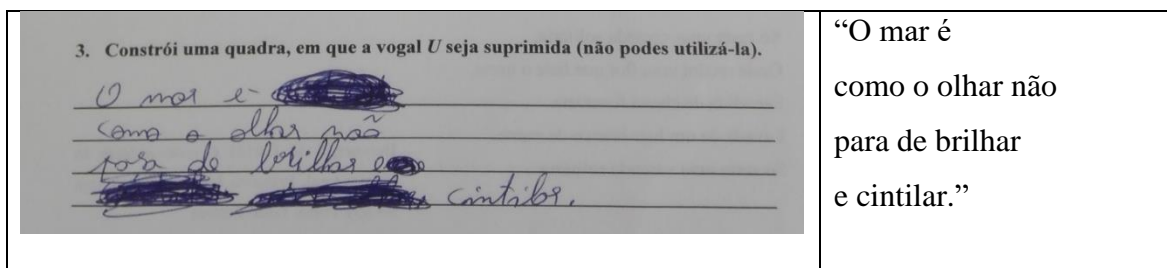 3. Constrói uma quadra, em que a vogal U seja suprimida (não podes utilizá-la).
O mar é
como o olhar não
para de brilhar e
cintilar.
“O mar é
como o olhar não
para de brilhar
e cintilar.”